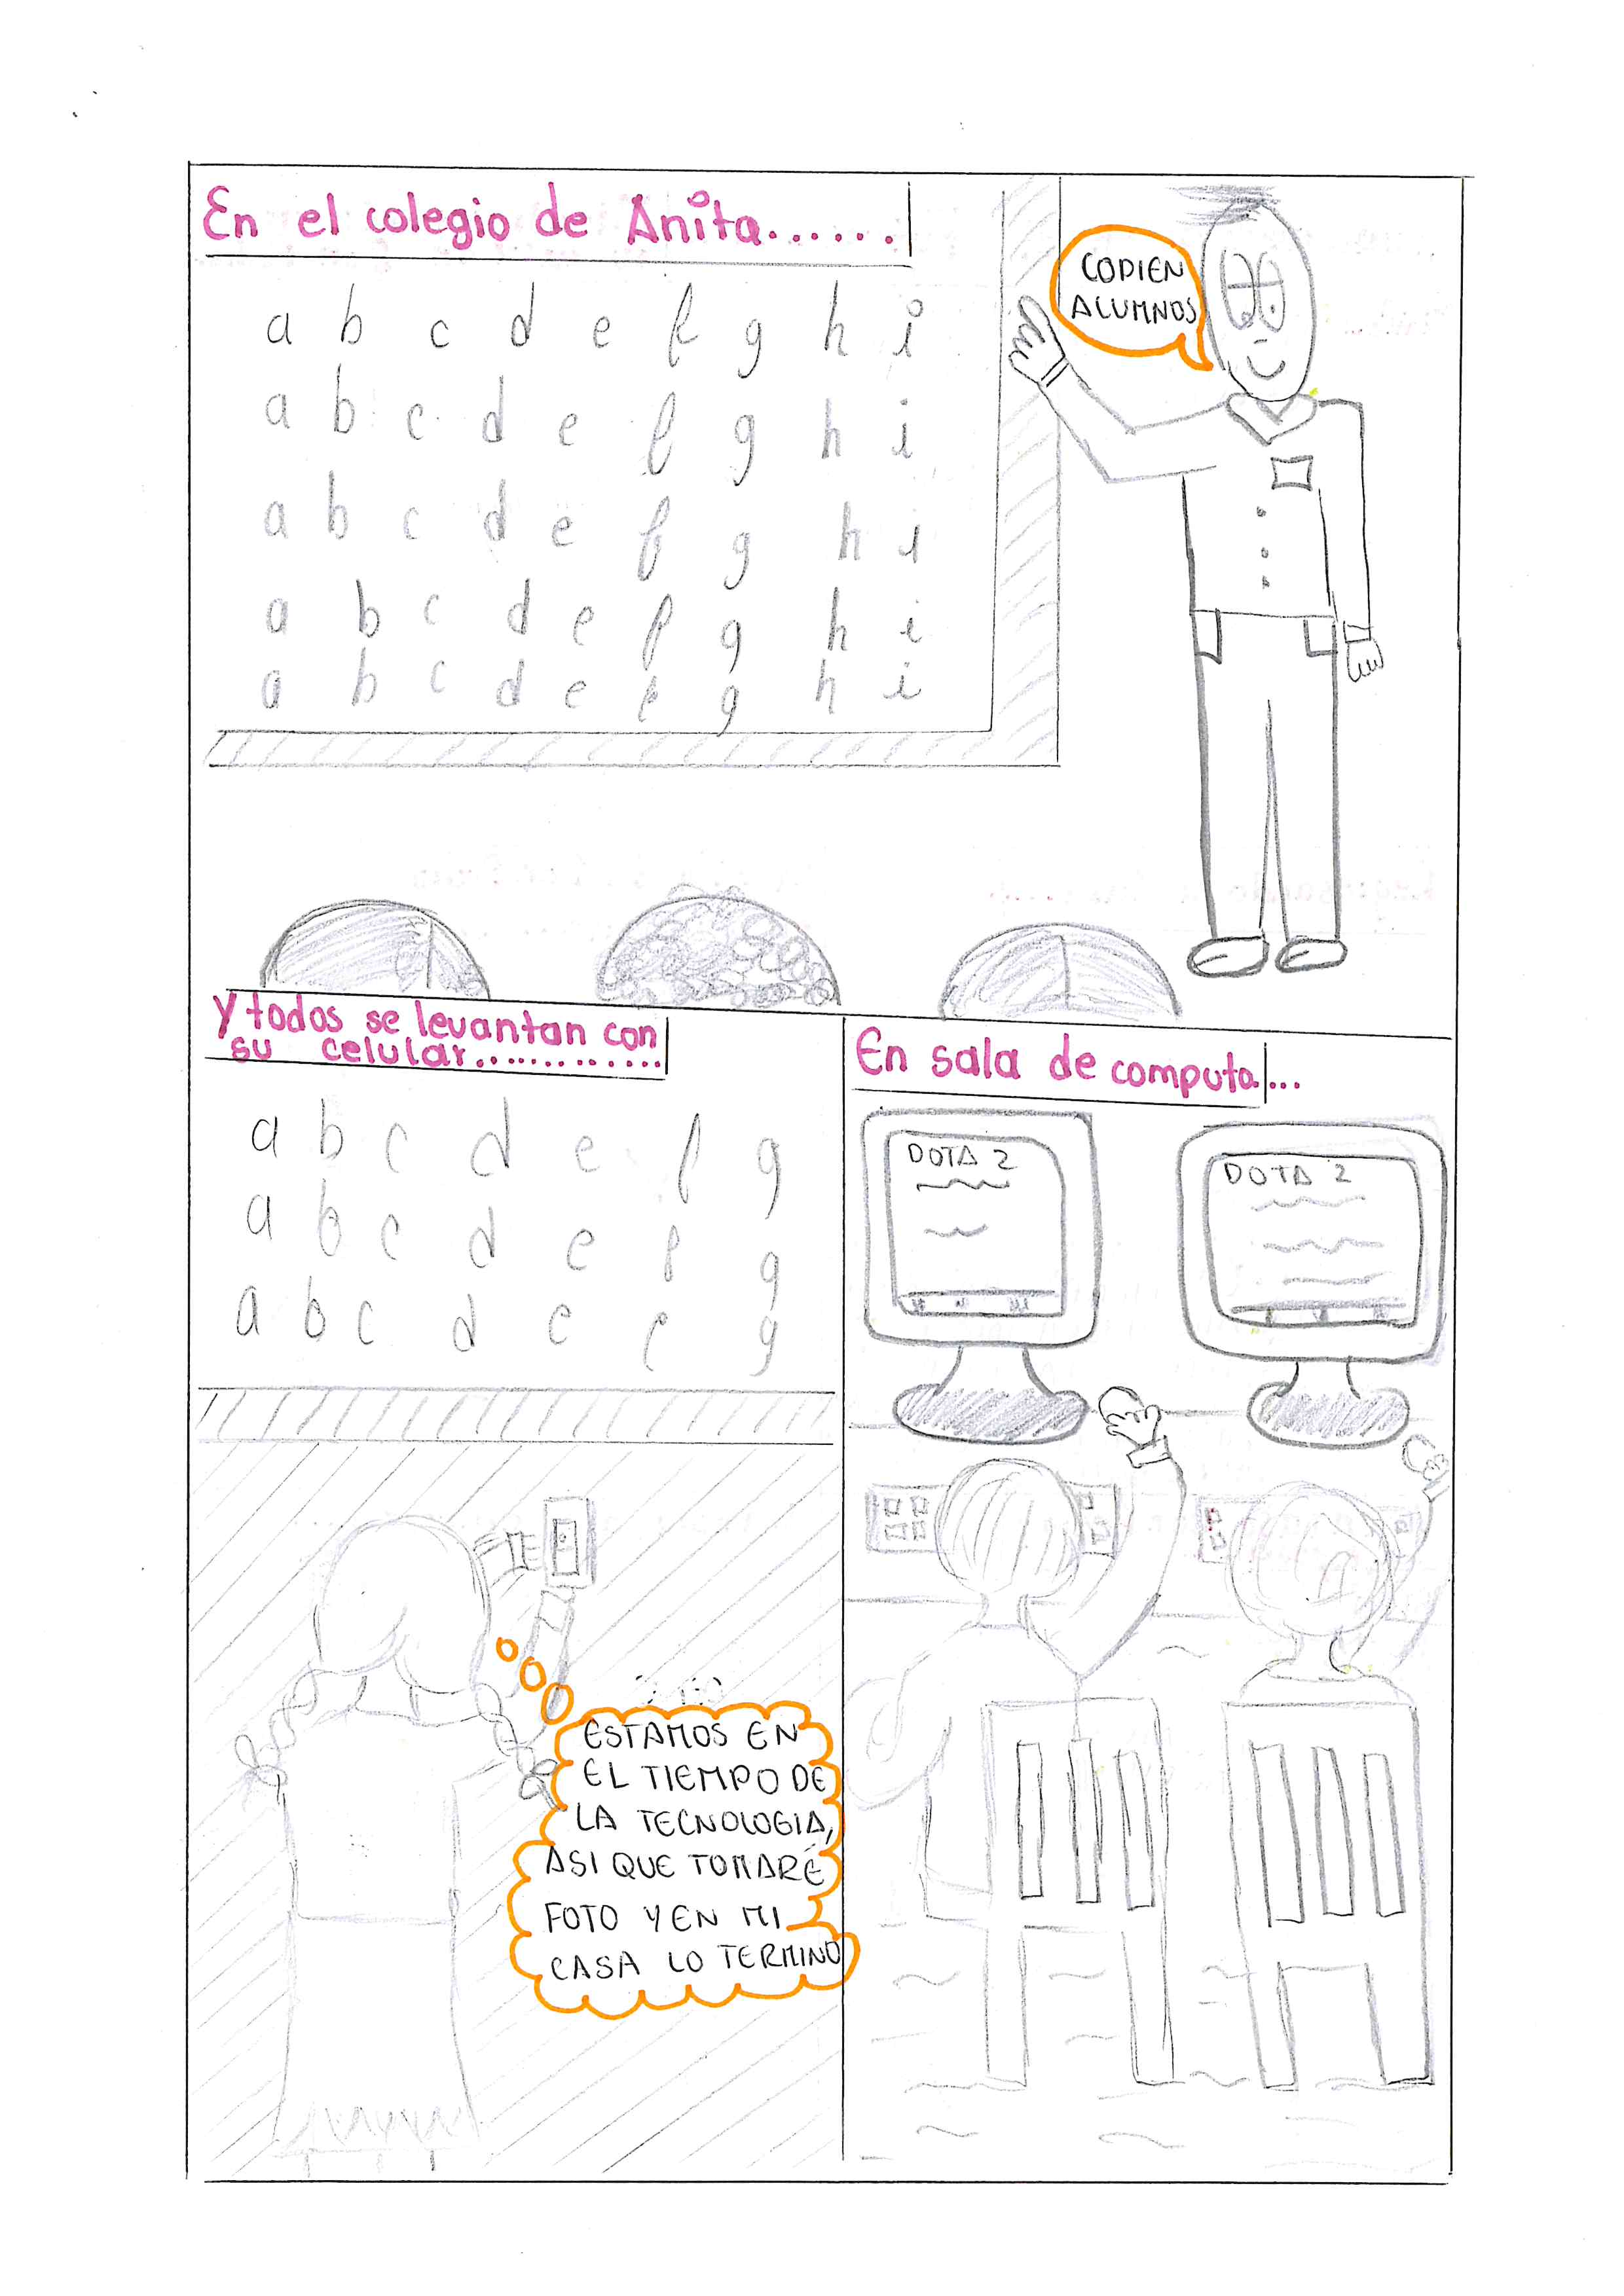 En el colegio de Anita......
COPIEN
ALUMNOS
a b c d e f g h i
a b c d e f g h i
a b c d e f g h i
a b c d e f g h i
a b c d e f g h i
Y todos se levantan con
su celular.............
a b c d e f g
a b c d e f g
a b c d e f g
ESTAMOS EN
EL TIEMPO DE
LA TECNOLOGIA,
ASI QUE TOMARÉ
FOTO Y EN MI
CASA LO TERMINO
En sala de computa...
DOTA 2
DOTA 2